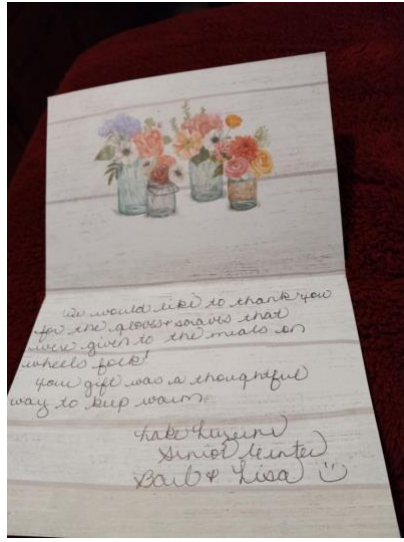 We would like to thank you
for the gloves + scarves that
were given to the meals on
wheels folk!
Your gift was a thoughtful
way to keep warm.
Lake Luzerne
Senior Center
Barb + Lisa